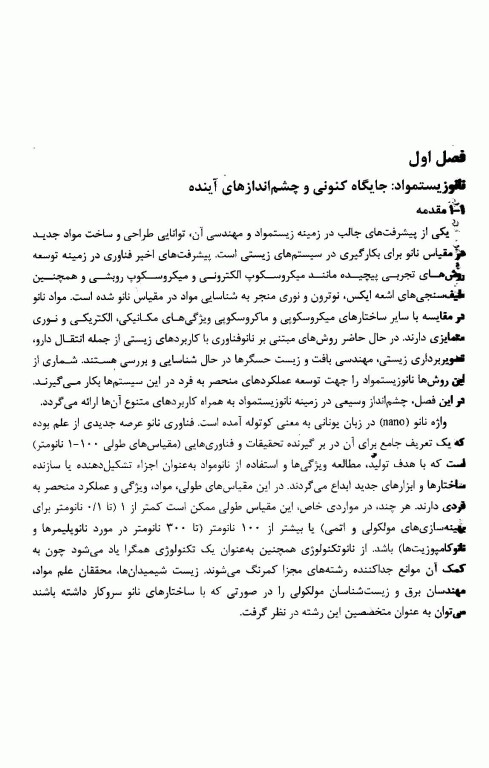 فصل اول
نانوزیستمواد: جایگاه کنونی و چشم‌اندازهای آینده
۱-۱ مقدمه
یکی از پیشرفت‌های جالب در زمینه زیستمواد و مهندسی آن، توانایی طراحی و ساخت مواد جدید
در مقیاس نانو برای بکارگیری در سیستم‌های زیستی است. پیشرفت‌های اخیر فناوری در زمینه توسعه
روش‌های تجربی پیچیده مانند میکروسکوپ الکترونی و میکروسکوپ روبشی و همچنین
طیف‌سنجی‌های اشعه ایکس، نوترون و نوری منجر به شناسایی مواد در مقیاس نانو شده است. مواد نانو
در مقایسه با سایر ساختارهای میکروسکوپی و ماکروسکوپی ویژگی‌های مکانیکی، الکتریکی و نوری
متمایزی دارند. در حال حاضر روش‌های مبتنی بر نانوفناوری با کاربردهای زیستی از جمله انتقال دارو،
تصویربرداری زیستی، مهندسی بافت و زیست حسگرها در حال شناسایی و بررسی هستند. شماری از
این روش‌ها نانوزیستمواد را جهت توسعه عملکردهای منحصر به فرد در این سیستم‌ها بکار می‌گیرند.
در این فصل، چشم‌انداز وسیعی در زمینه نانوزیستمواد به همراه کاربردهای متنوع آن‌ها ارائه می‌گردد.
واژه نانو (nano) در زبان یونانی به معنی کوتوله آمده است. فناوری نانو عرصه جدیدی از علم بوده
که یک تعریف جامع برای آن در بر گیرنده تحقیقات و فناوری‌هایی (مقیاس‌های طولی ۱۰۰-۱ نانومتر)
است که با هدف تولید، مطالعه ویژگی‌ها و استفاده از نانومواد به‌عنوان اجزاء تشکیل‌دهنده یا سازنده
ساختارها و ابزارهای جدید ابداع می‌گردند. در این مقیاس‌های طولی، مواد، ویژگی و عملکرد منحصر به
فردی دارند. هر چند، در مواردی خاص، این مقیاس طولی ممکن است کمتر از ۱ (تا ۰/۱ نانومتر برای
بهینه‌سازی‌های مولکولی و اتمی) یا بیشتر از ۱۰۰ نانومتر (تا ۳۰۰ نانومتر در مورد نانوپلیمرها و
نانوکامپوزیت‌ها) باشد. از نانوتکنولوژی همچنین به‌عنوان یک تکنولوژی همگرا یاد می‌شود چون به
کمک آن موانع جداکننده رشته‌های مجزا کمرنگ می‌شوند. زیست شیمیدان‌ها، محققان علم مواد،
مهندسان برق و زیست‌شناسان مولکولی را در صورتی که با ساختارهای نانو سروکار داشته باشند
می‌توان به عنوان متخصصین این رشته در نظر گرفت.